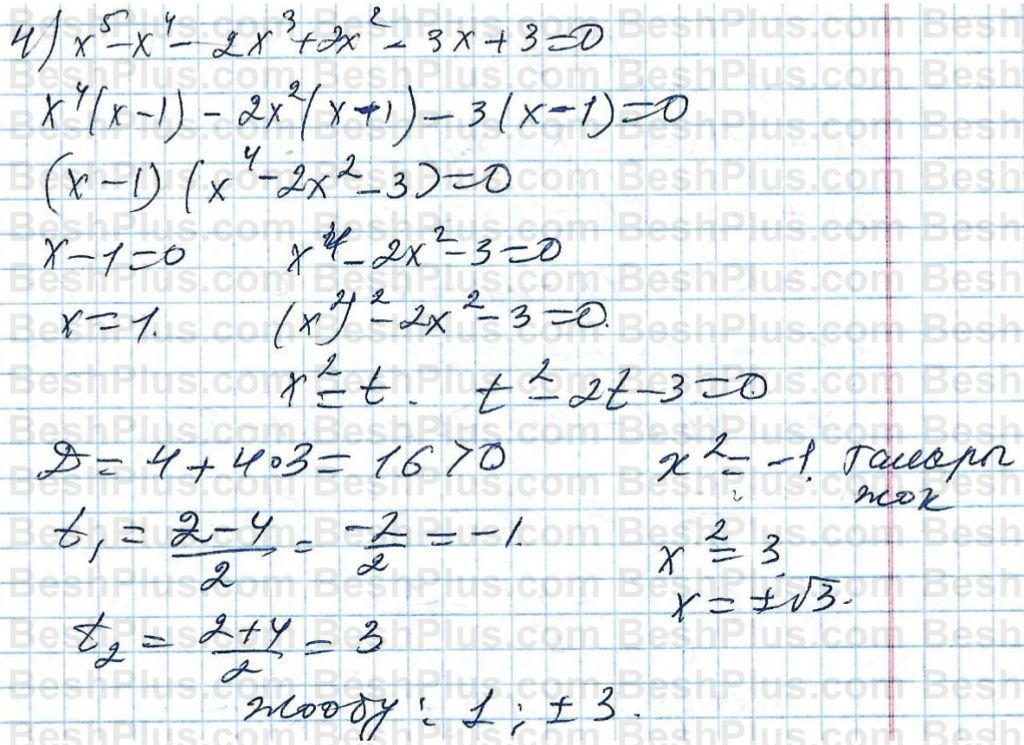 4) x⁵-x⁴-2x³+2x²-3x+3=0
x⁴(x-1)-2x²(x-1)-3(x-1)=0
(x-1)(x⁴-2x²-3)=0
x-1=0 x⁴-2x²-3=0
x=1. (x²)²-2x²-3=0.
x²=t. t²-2t-3=0.
D=4+4∘3=16>0
t₁=(2-4)/2=-2/2=-1.
t₂=(2+4)/2=3
x²=-1. Тамыры
жок
x²=3.
x=±√3.
жообу: 1; ±3.
BeshPlus.com